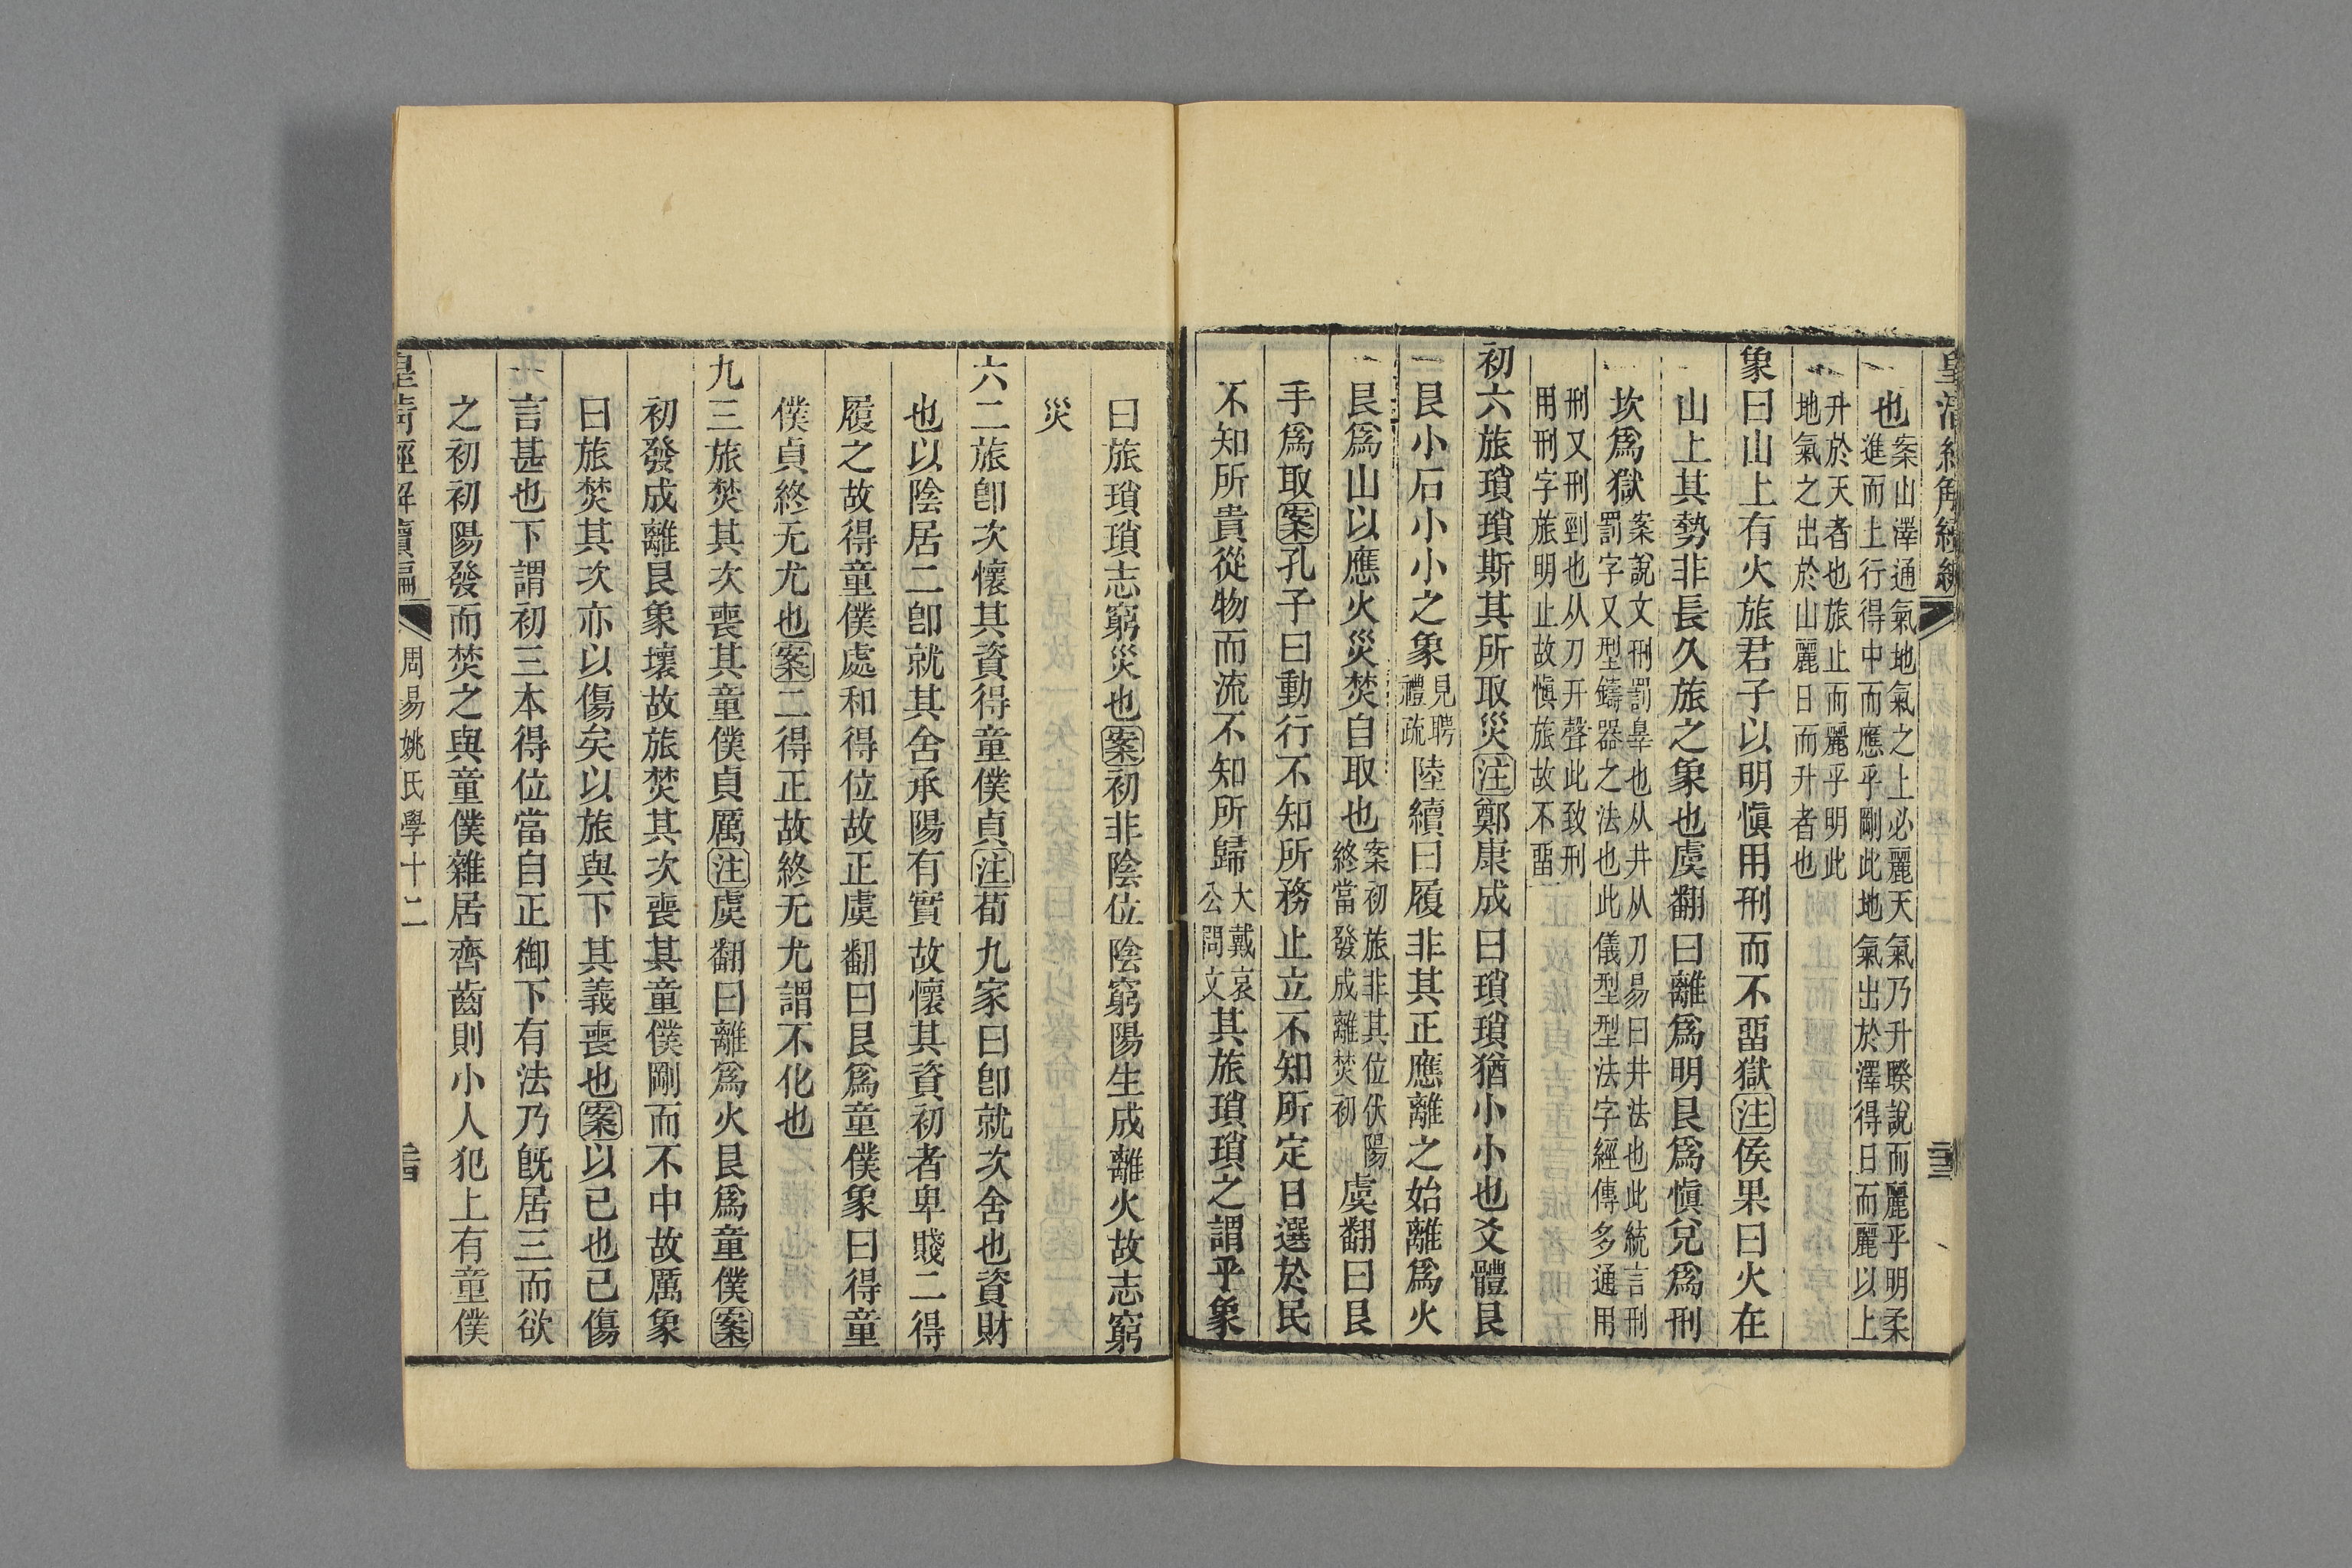 也案山澤通氣地氣之上必麗天氣乃升睽說而麗乎明柔
進而上行得中而應乎剛此地氣出於澤得日而麗以上
升於天者也旅止而麗乎明此
地氣之出於山麗日而升者也
象曰山上有火旅君子以明愼用刑而不畱獄注侯果曰火在
山上其勢非長久旅之象也虞翻曰離爲明艮爲愼兌爲刑
坎爲獄案說文㓝罰辠也从井从刀易曰井法也此統言刑
罰字又型鑄器之法也此儀型型法字經傳多通用
刑又刑剄也从刀幵聲此致刑
用刑字旅明止故愼旅故不畱
初六旅瑣瑣斯其所取災注鄭康成曰瑣瑣猶小小也爻體艮
艮小石小小之象見聘
禮疏陸續曰履非其正應離之始離爲火
艮爲山以應火災焚自取也案初旅非其位伏陽
終當發成離焚初虞翻曰艮
手爲取案孔子曰動行不知所務止立不知所定日選於民
不知所貴從物而流不知所歸大戴哀
公問文其旅瑣瑣之謂乎象
曰旅瑣瑣志窮災也案初非陰位陰窮陽生成離火故志窮
災
六二旅卽次懷其資得童僕貞注荀九家曰卽就次舍也資財
也以陰居二卽就其舍承陽有實故懷其資初者卑賤二得
履之故得童僕處和得位故正虞翻曰艮爲童僕象曰得童
僕貞終无尤也案二得正故終无尤謂不化也
九三旅焚其次喪其童僕貞厲注虞翻曰離爲火艮爲童僕案
初發成離艮象壞故旅焚其次喪其童僕剛而不中故厲象
曰旅焚其次亦以傷矣以旅與下其義喪也案以已也已傷
言甚也下謂初三本得位當自正御下有法乃旣居三而欲
之初初陽發而焚之與童僕雜居齊齒則小人犯上有童僕
皇淸經解續編
周易姚氏學十二